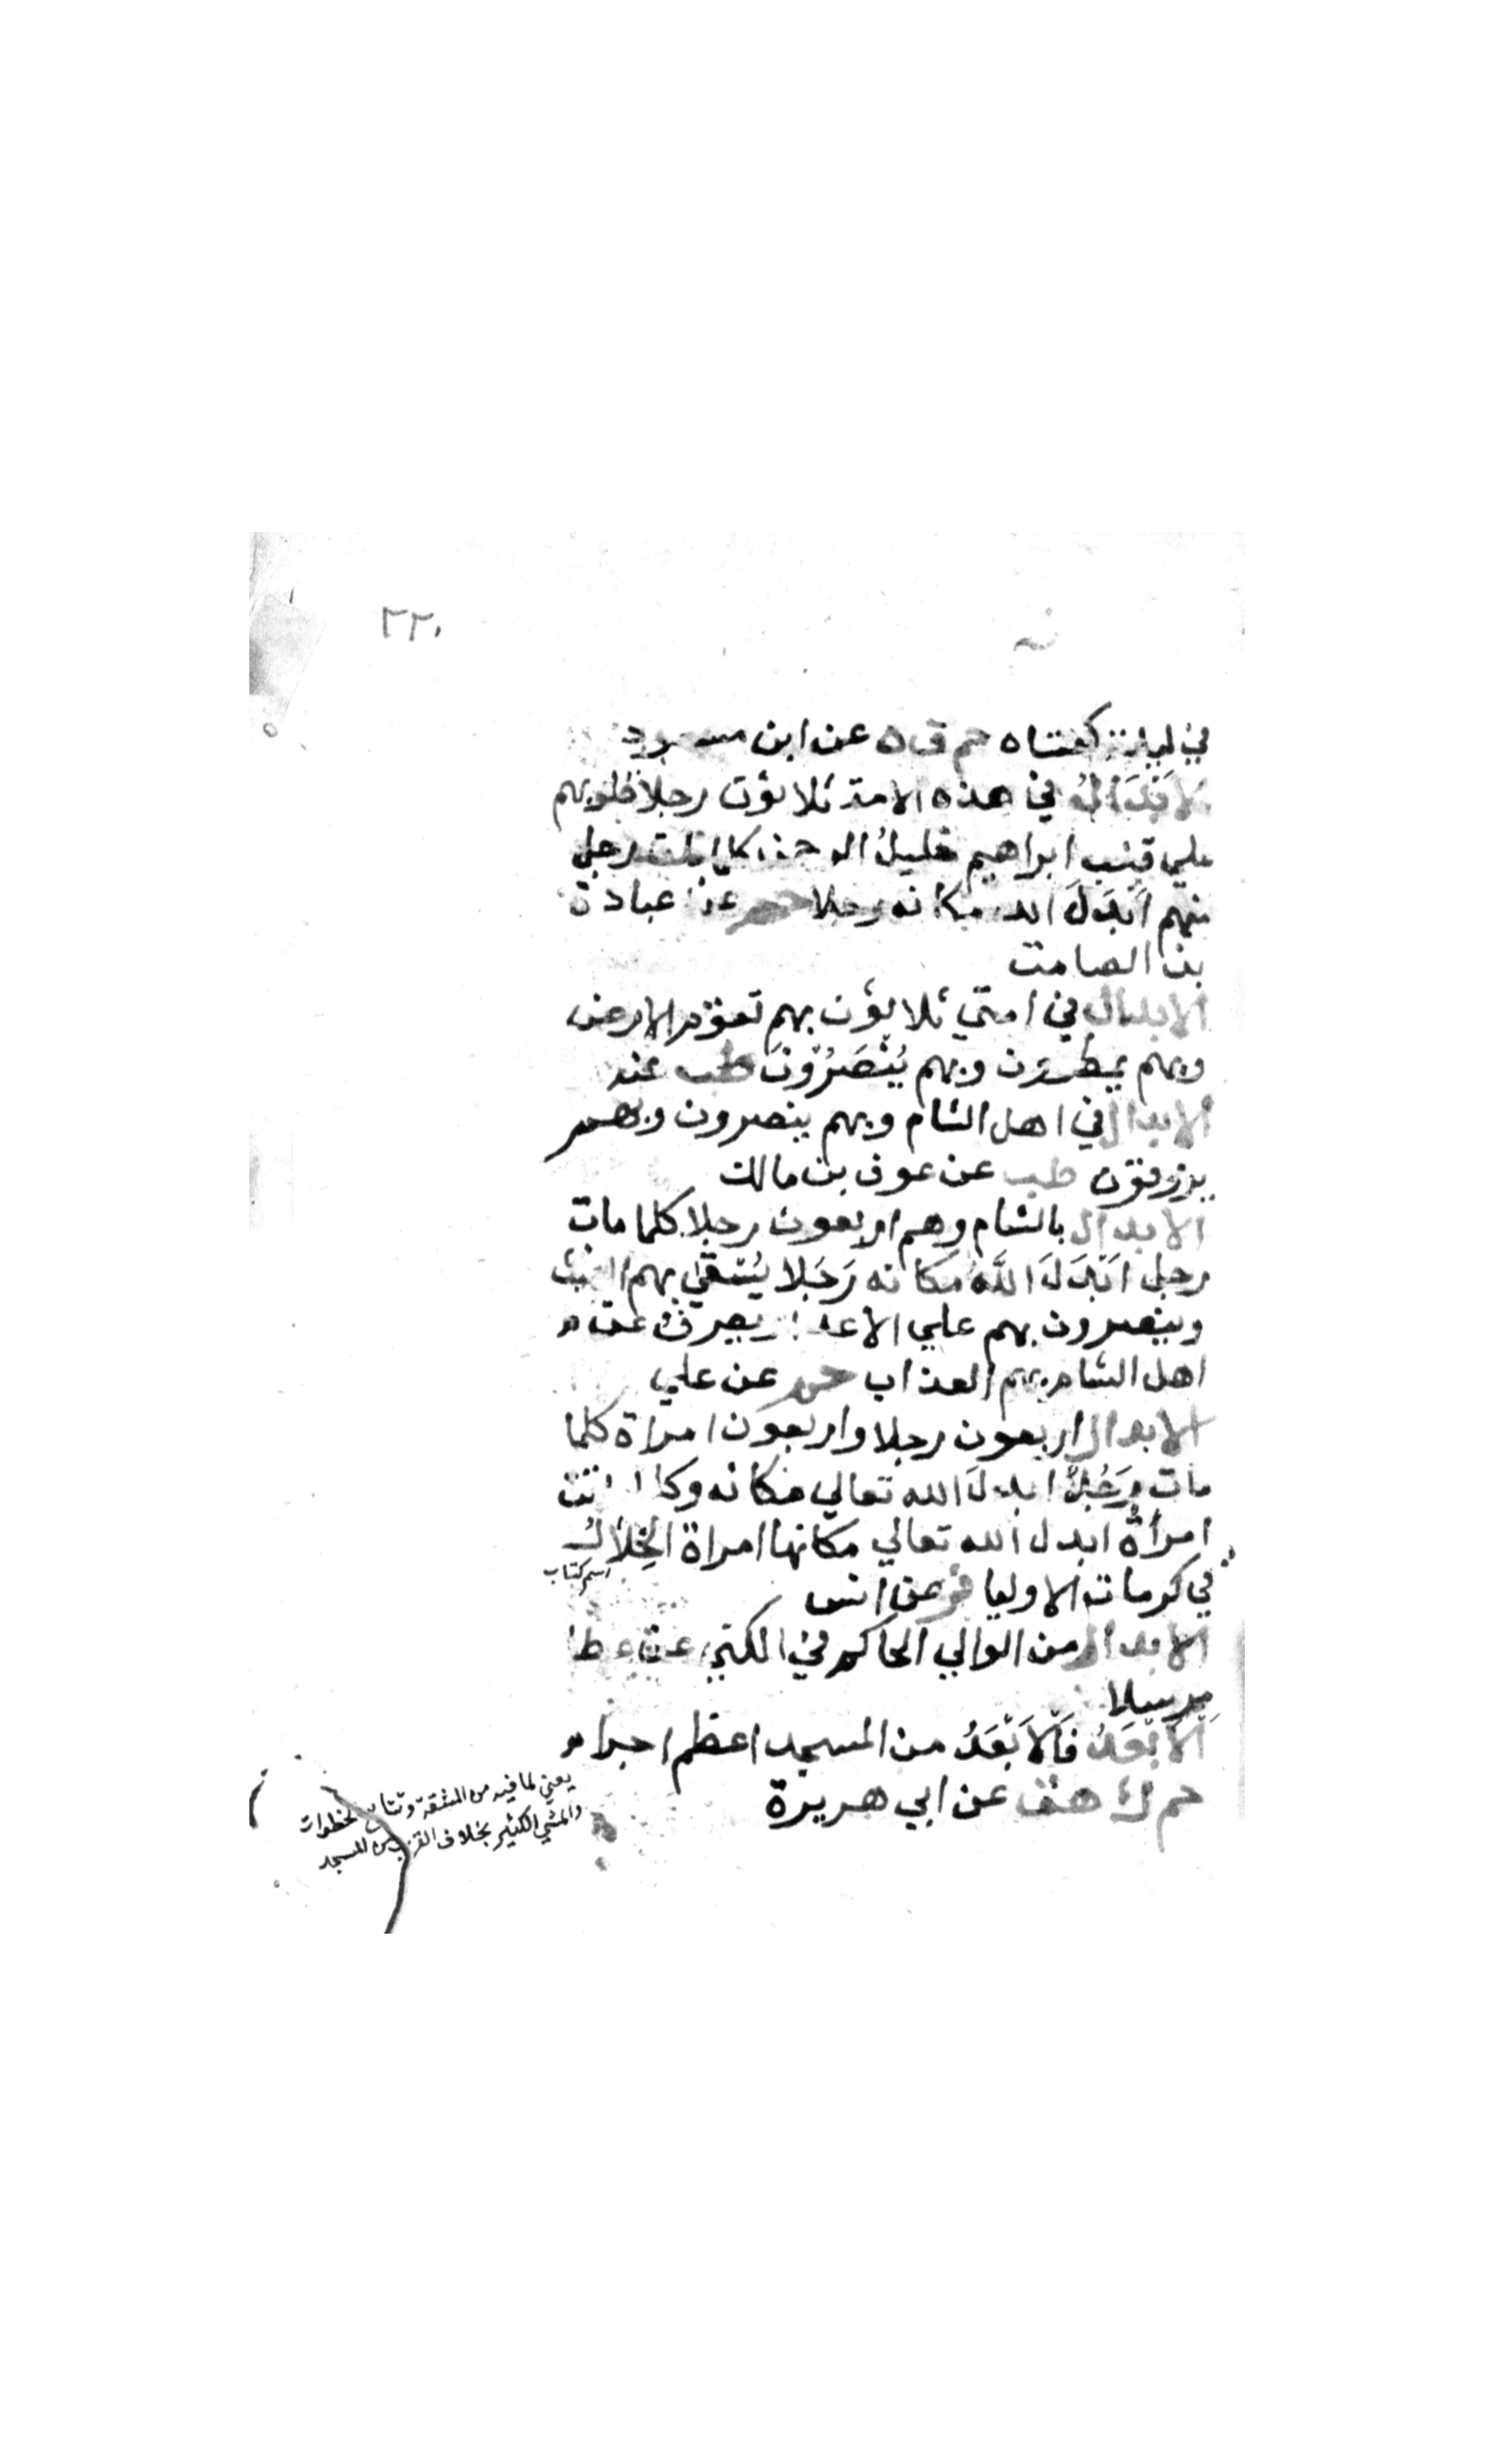 ٢٢٠
في ليلة كفتاه حم ق ٥ عن ابن مسعود
الاَبْدَالُ في هذه الامة ثلاثون رجلا قلوبهم
علي قلب ابراهيم خليلُ الرحمن كلما مات رجل
منهم اَبْدَلَ الله مكانه رجلا حم عن عبادة
بن الصامت
الابدال في امتي ثلاثون بهم تقوم الارض
وبهم يمطرون وبهم يُنْصَرُوْنَ طب عنه
الابدال في اهل الشام وبهم ينصرون وبهم
يرزقون طب عن عوف بن مالك
الابدال بالشام وهم اربعون رجلا كلما مات
رجل اَبْدَلَ اللَّهُ مَكانه رَجَلا يُسْتقي بهم الغيث
وينصرون بهم علي الاعدا يصرف عن
اهل الشام بهم العذاب حم عن علي
الابدال اربعون رجلا واربعون امراة كلما
مات رَجُلٌ ابدلَ الله تعالي مكانه وكلما ماتت
امرأةٌ ابدل الله تعالي مكانها امراة الخِلاَلُ
اسم كتاب
في كرمات الاوليا فر عن انس
الابدال من الوالي الحاكم في الكني عن عطا
مرسلا
اَلاَبْعَدُ فَاْلاَبْعَدُ من المسجد اعظم اجرا
حم د ٥ ك هق عن ابي هريرة
يعني لما فيه من المشقة وتتابع الخطوات
والمشي الكثير بخلاف القرب من المسجد